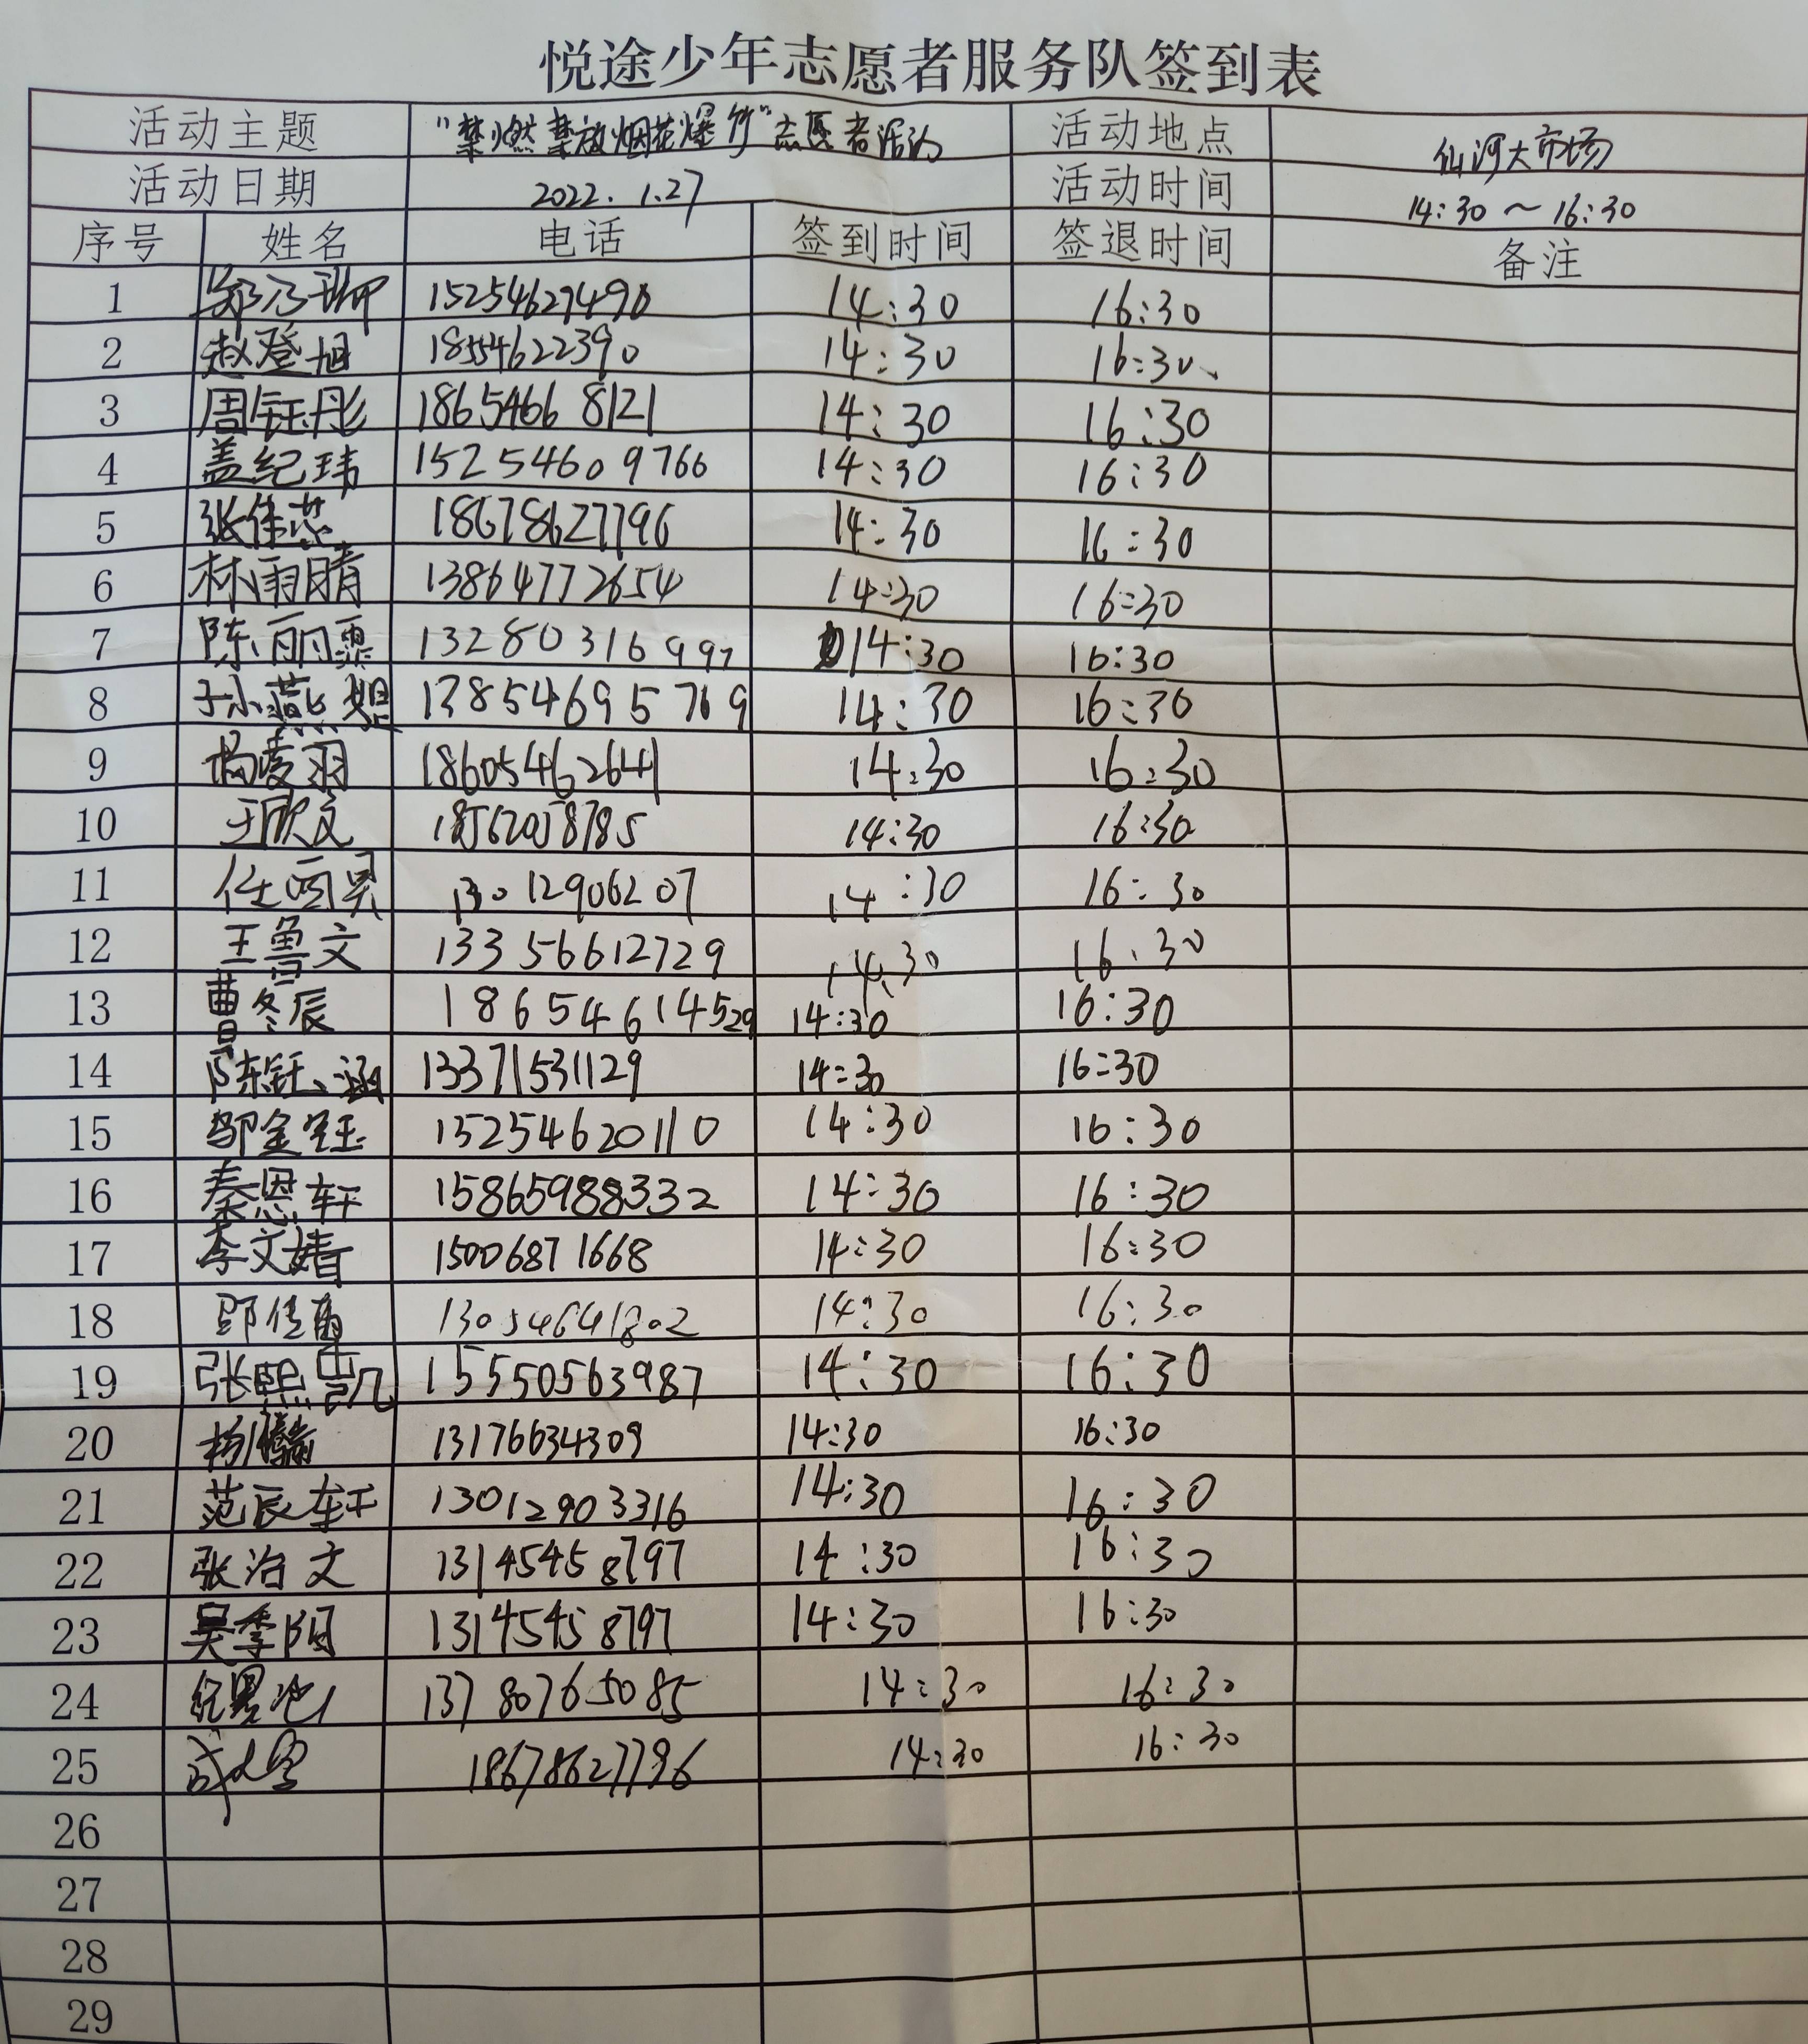 悦途少年志愿者服务队签到表
活动主题 "禁燃禁放烟花爆竹"志愿者活动 活动地点 仙河大市场
活动日期 2022.1.27 活动时间 14:30～16:30
序号 姓名 电话 签到时间 签退时间 备注
1 郑乃珊 15254627490 14:30 16:30
2 赵登旭 18554622390 14:30 16:30
3 周钰彤 18654668121 14:30 16:30
4 盖纪玮 15254609766 14:30 16:30
5 张佳芯 18678627796 14:30 16:30
6 林雨晴 13864772654 14:30 16:30
7 陈丽霖 13280316997 14:30 16:30
8 于小燕 13854695769 14:30 16:30
9 杨凌羽 18605462641 14:30 16:30
10 王欣文 18562058785 14:30 16:30
11 任雨昊 13012906207 14:30 16:30
12 王鲁文 13356612729 14:30 16:30
13 曹冬辰 18654614529 14:30 16:30
14 陈钰涵 13371531129 14:30 16:30
15 邹金钰 15254620110 14:30 16:30
16 秦恩轩 15865988332 14:30 16:30
17 李文婧 15006871668 14:30 16:30
18 13054641802 14:30 16:30
19 张熙凯 15550563987 14:30 16:30
20 杨 13176634309 14:30 16:30
21 范辰轩 13012903316 14:30 16:30
22 张治文 13145458797 14:30 16:30
23 吴季阳 13145458797 14:30 16:30
24 13780765085 14:30 16:30
25 18678627796 14:30 16:30
26
27
28
29